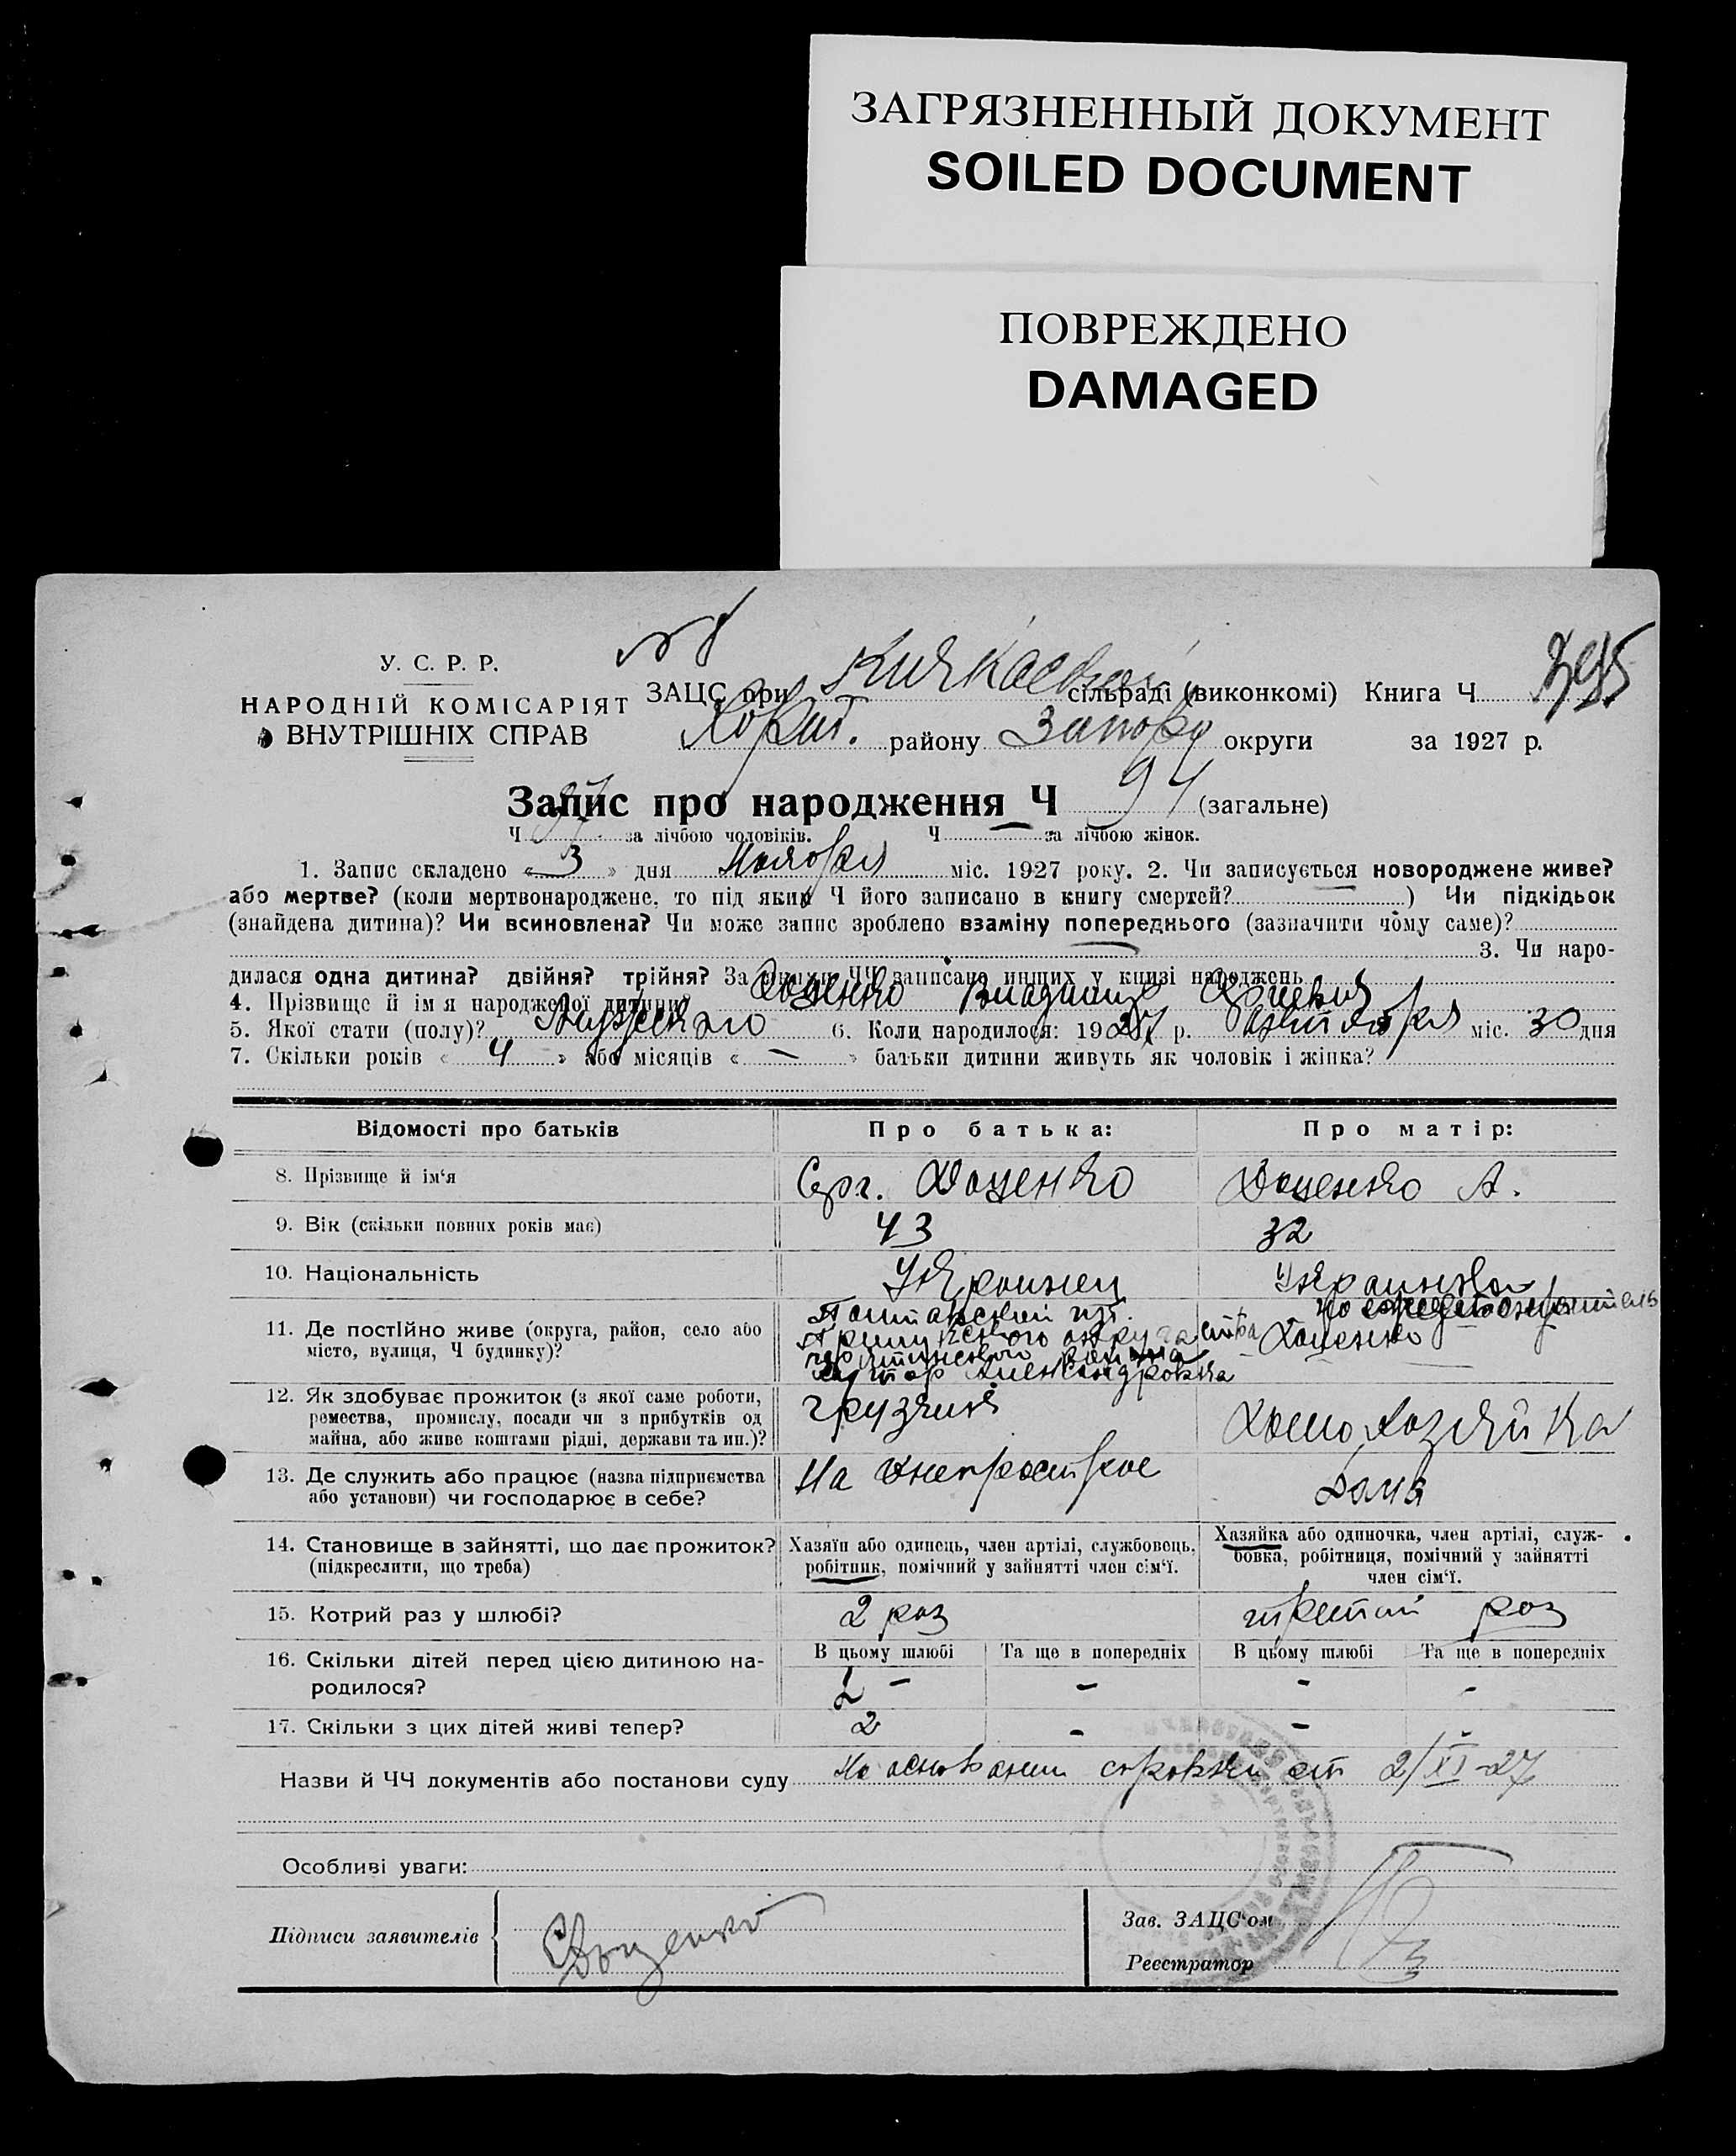 ЗАГРЯЗНЕННЫЙ ДОКУМЕНТ
SOILED DOCUMENT
ПОВРЕЖДЕНО
DAMAGED
У. С. Р. Р.
НАРОДНІЙ КОМІСАРІЯТ
ВНУТРІШНІХ СПРАВ
ЗАЦС при Кичкаській сільраді (виконкомі) Книга Ч
Хорт. району Запорз округи за 1927 р.
Запис про народження Ч 94 (загальне)
Ч за лічбою чоловіків. Ч — за лічбою жінок.
1. Запис складено « 3 » дня Ноября міс. 1927 року. 2. Чи записується новороджене живе?
або мертве? (коли мертвонароджене, то під яким Ч його записано в книгу смертей? ) Чи підкідьок
(знайдена дитина)? Чи всиновлена? Чи може запис зроблено взаміну попереднього (зазначити чому саме)?
3. Чи наро-
дилася одна дитина? двійня? трійня? За якими ЧЧ записано инших у книзі народжень
4. Прізвище й ім я народженої дитини Доценко Владимир
5. Якої стати (полу)? Мужского 6. Коли народилося: 1927 р. міс. 30 дня
7. Скільки років « 4 » або місяців « — » батьки дитини живуть як чоловік і жінка?
Відомості про батьків Про батька: Про матір:
8. Прізвище й ім'я Серг. Доценко Доценко А.
9. Вік (скільки повних років має) 43 32
10. Національність Украинец Украинка
11. Де постійно живе (округа, район, село або
місто, вулиця, Ч будинку)?
Прилукского округа
хутор Александровка
Доценко
12. Як здобуває прожиток (з якої саме роботи,
ремества, промислу, посади чи з прибутків од
майна, або живе коштами рідні, держави та ин.)?
грузчик Домохозяйка
13. Де служить або працює (назва підприємства
або установи) чи господарює в себе?
На Днепрострое Дома
14. Становище в зайнятті, що дає прожиток?
(підкреслити, що треба)
Хазяїн або одинець, член артілі, службовець,
робітник, помічний у зайнятті член сім'ї.
Хазяйка або одиночка, член артілі, служ-
бовка, робітниця, помічний у зайнятті
член сім'ї.
15. Котрий раз у шлюбі? 2 раз третий раз
16. Скільки дітей перед цією дитиною на-
родилося?
В цьому шлюбі Та ще в попередніх В цьому шлюбі Та ще в попередніх
2 - - - -
17. Скільки з цих дітей живі тепер? 2 - -
Назви й ЧЧ документів або постанови суду На основании справки от 2/XI-27
Особливі уваги:
Підписи заявителів СДоценко
Зав. ЗАЦС'ом
Реєстратор